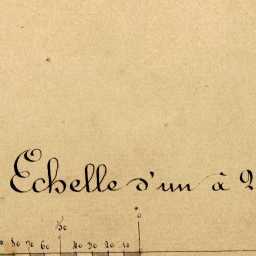 Echelle d'un à 2
50
0
80 70 60 40 30 20 10